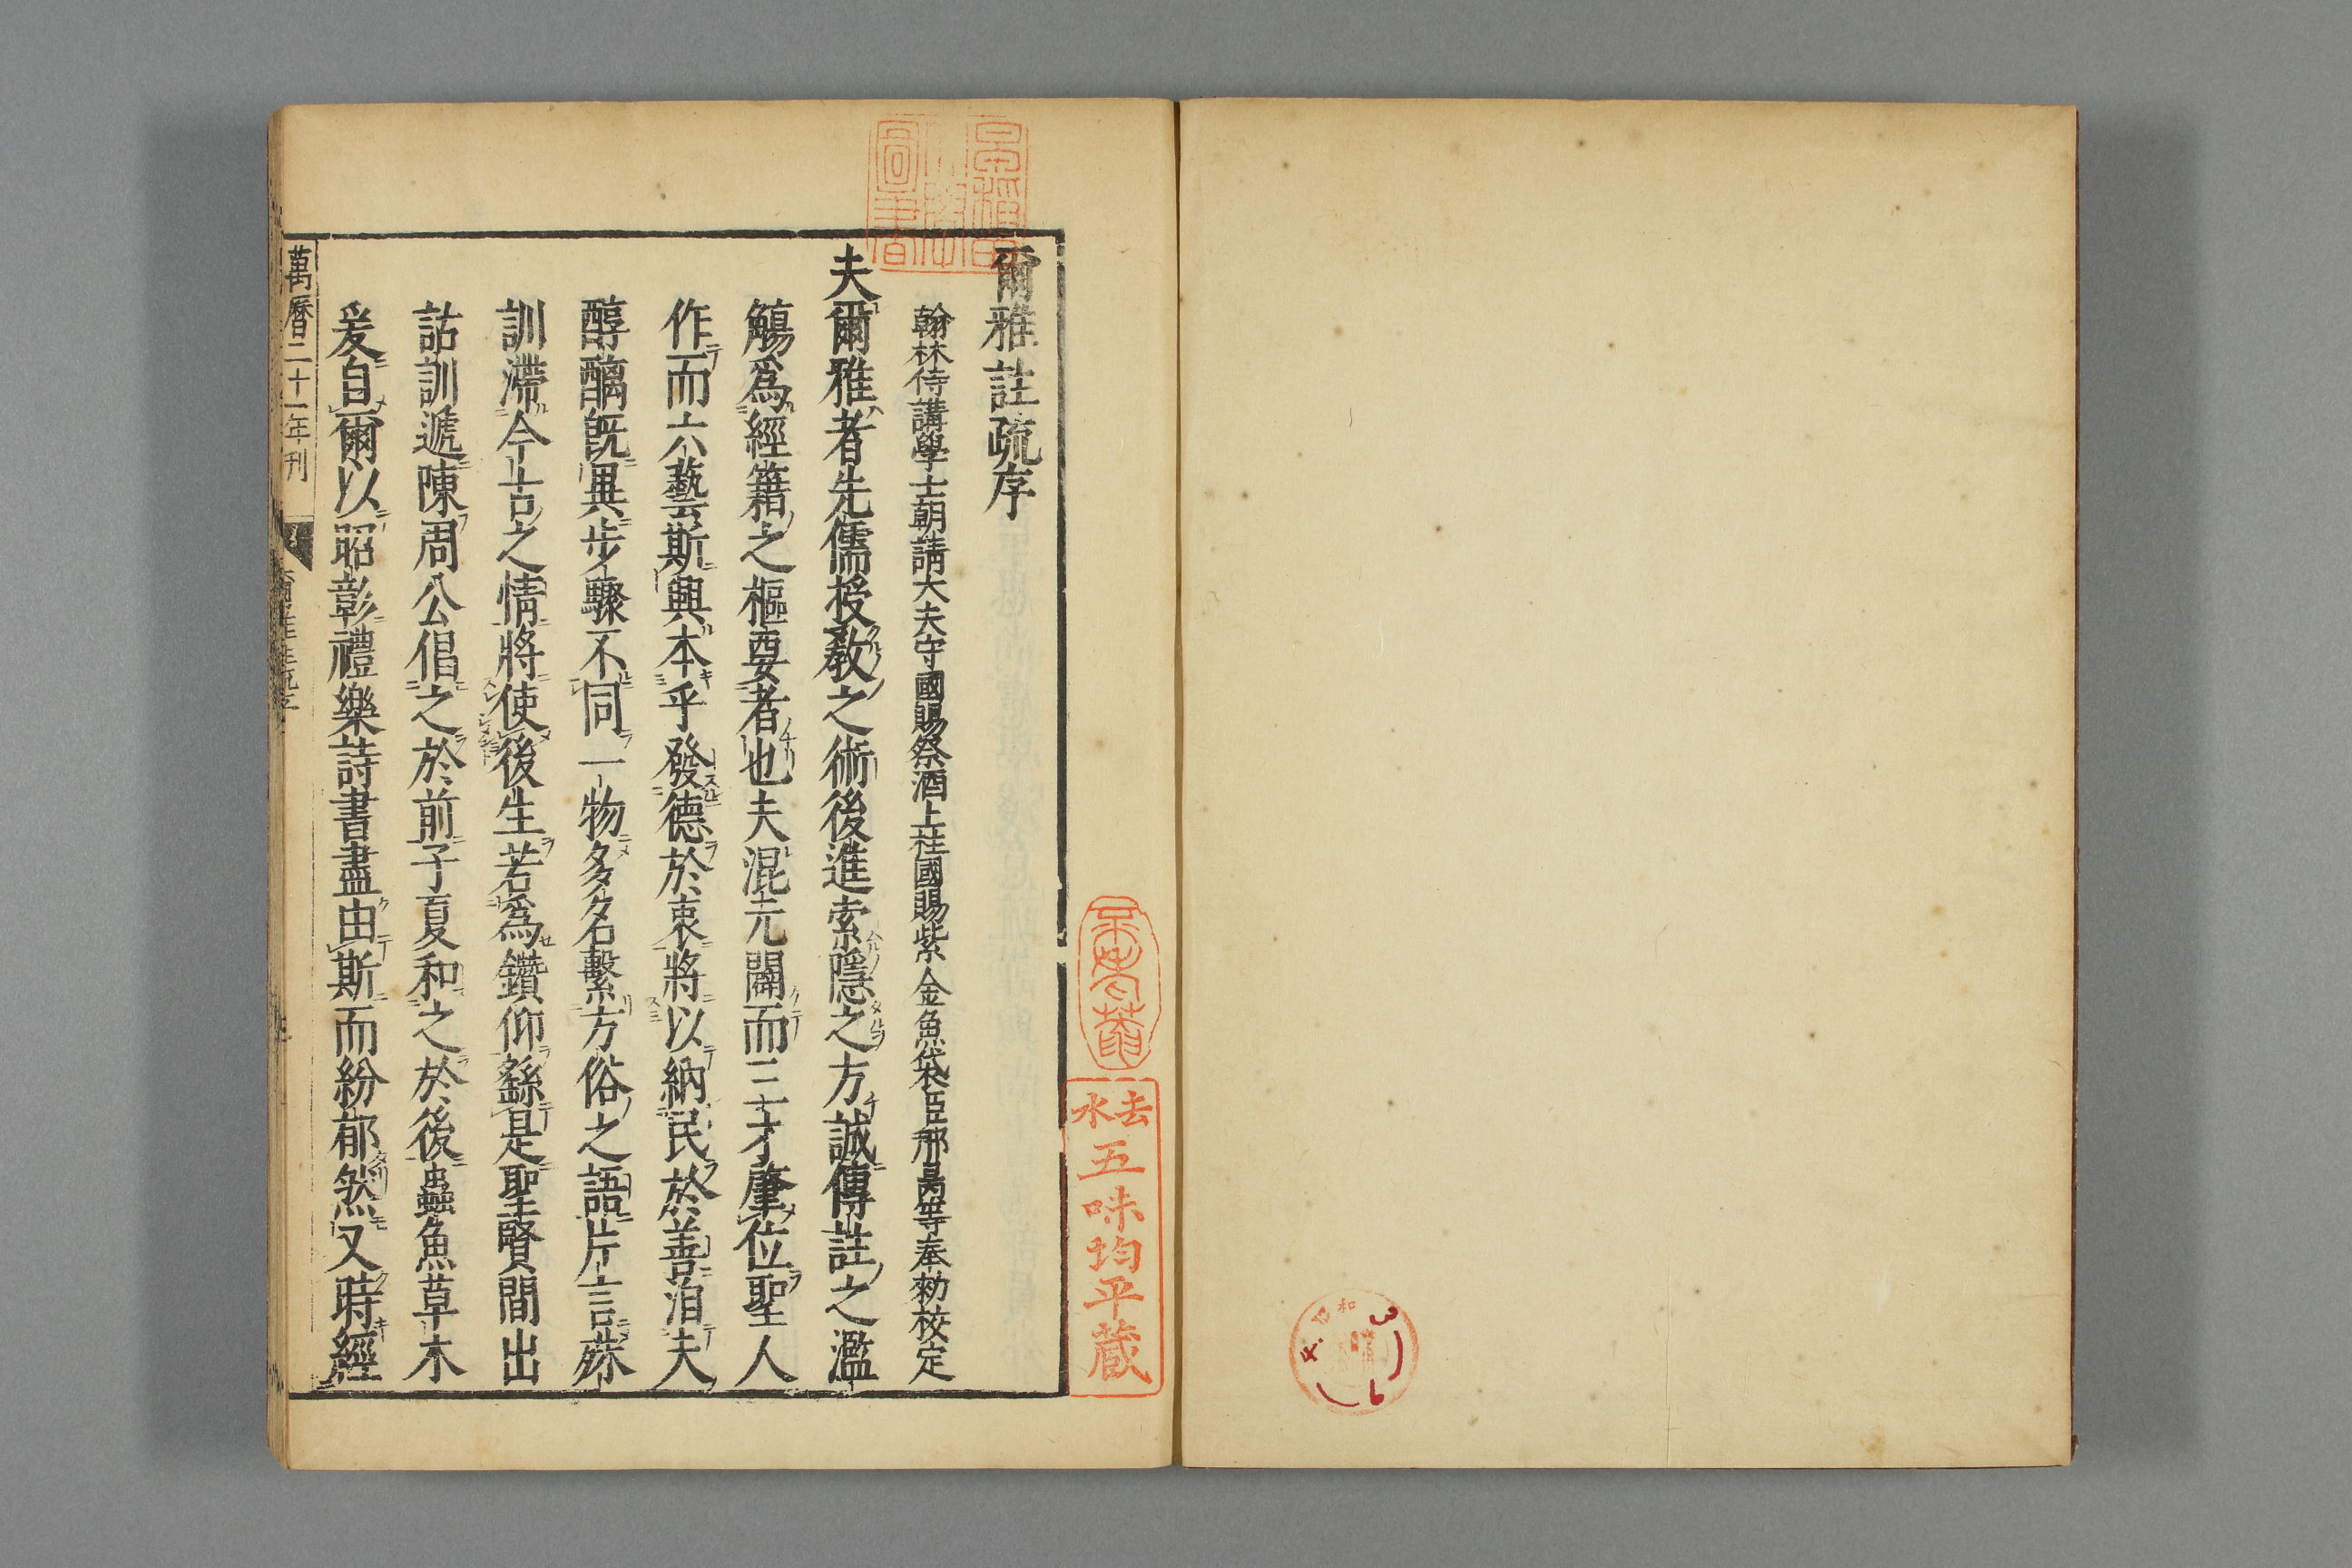 爾雅註疏序
翰林侍講學士朝請大夫守國賜祭酒上柱國賜紫金魚袋臣邢昺等奉勑校定
夫爾雅者先儒授敎之術後進索隱之方誠傳註之濫
觴爲經籍之樞要者也夫混元闢而三才肇位聖人
作而六藝斯興本乎發德於衷將以納民於善洎夫
醇醨旣異步驟不同一物多名繫方俗之語片言殊
訓滯今古之情將使後生若爲鑽仰繇是聖賢間出
詁訓遞陳周公倡之於前子夏和之於後蟲魚草木
爰自爾以昭彰禮樂詩書盡由斯而紛郁然又時經
萬曆二十一年刊
爾雅註疏序
去水
五味均平蔵
昭和